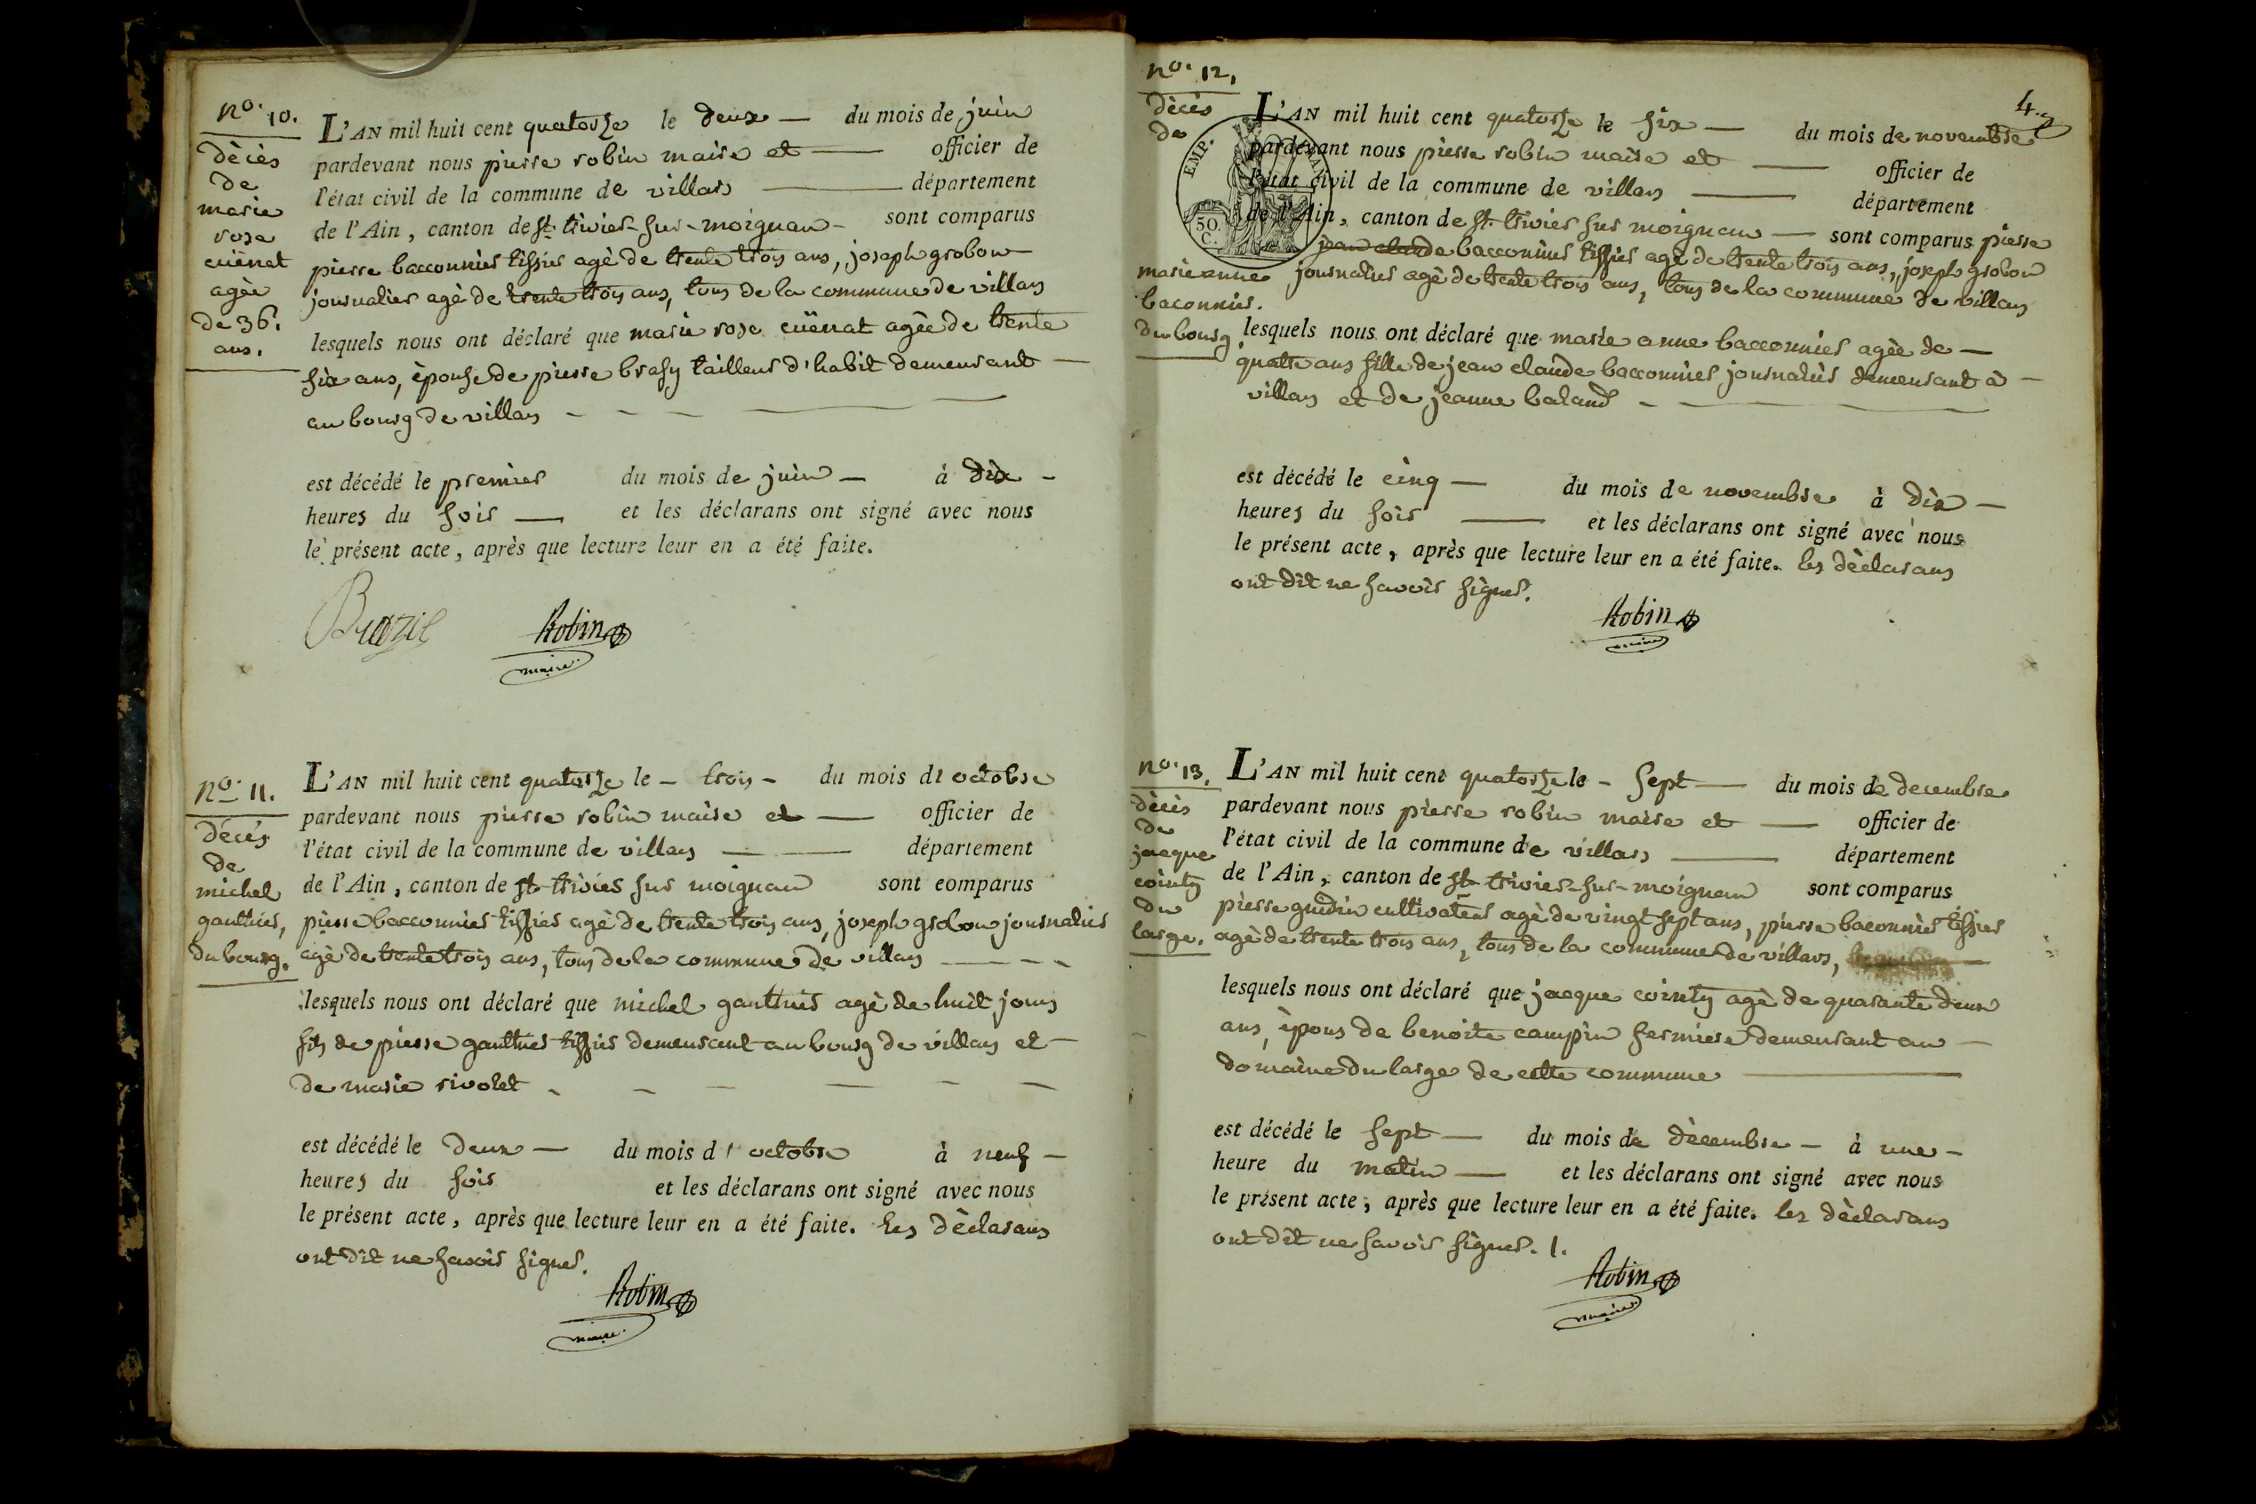 no. 10.
dècès
de
marie
rose
cuënat
agèe
de 36.
ans.
L'AN mil huit cent quatorze le deux — du mois de juin
pardevant nous pierre robin maire et — officier de
l'état civil de la commune de villars — département
de l'Ain, canton de st trivier-sur-moignan - sont comparus
pierre bacconnier tissier agè de trente trois ans, joseph grobon
journalier agè de trente trois ans, tous de la commune de villars
lesquels nous ont déclaré que marie rose cuënat agèe de trente
six ans, èpouse de pierre brasy tailleur d'habit demeurant —
au bourg de villars - - - — —
est décédé le premier du mois de juin — à dix -
heures du soir — et les déclarans ont signé avec nous
le présent acte, après que lecture leur en a été faite.
Brazil Robin
maire.
no. 11.
dècès
de
michel
gauthier,
du bourg.
L'AN mil huit cent quatorze le - trois - du mois d octobre
pardevant nous pierre robin maire et — officier de
l'état civil de la commune de villars — — département
de l'Ain, canton de st trivier sur moignan sont comparus
pierre bacconnier tissier agè de trente trois ans, joseph grobon journalier
agè de trente trois ans, tous de la commune de villars — - - -
lesquels nous ont déclaré que michel gauthier agè de huit jours
fils de pierre gauthier tissier demeurant au bourg de villars et —
de marie rivolet - - - — - —
est décédé le deux — du mois d' octobre à neuf —
heures du soir et les déclarans ont signé avec nous
le présent acte, après que lecture leur en a été faite. les dèclarans
ont dit ne savoir signer.
Robin
maire.
4.
no. 12,
dècès
de
marie anne
baconnier.
du bourg
EMP.
50.
C.
L'AN mil huit cent quatorze le six — du mois de novembre
pardevant nous pierre robin maire et — officier de
l'état civil de la commune de villars — département
de l'Ain, canton de st. trivier sur moignan — sont comparus pierre
jean claude bacconnier tissier agè de trente trois ans, joseph grobon
journalier agè de trente trois ans, tous de la commune de villars
lesquels nous ont déclaré que marie anne bacconnier agèe de —
quatre ans fille de jean claude bacconnier journalier demeurant à —
villars et de jeanne baland - —
est décédé le cinq — du mois de novembre à dix —
heures du soir — et les déclarans ont signé avec nous
le présent acte, après que lecture leur en a été faite. les dèclarans
ont dit ne savoir signer.
Robin
maire
no. 13.
dècès
de
jacque
cointy
du
large.
L'AN mil huit cent quatorze le - sept — du mois de decembre
pardevant nous pierre robin maire et — officier de
l'état civil de la commune de villars — département
de l'Ain, canton de st trivier-sur-moignan sont comparus
pierre guidin cultivateur agè de vingt sept ans, pierre baconnier tissier
agè de trente trois ans, tous de la commune de villars,
lesquels nous ont déclaré que jacque cointy agè de quarante deux
ans, èpoux de benoite campin fermiere demeurant au —
domaine du large de cette commune —
est décédé le sept — du mois de dècembre - à une -
heure du matin — et les déclarans ont signé avec nous
le présent acte, après que lecture leur en a été faite. les dèclarans
ont dit ne savoir signer. /.
Robin
maire